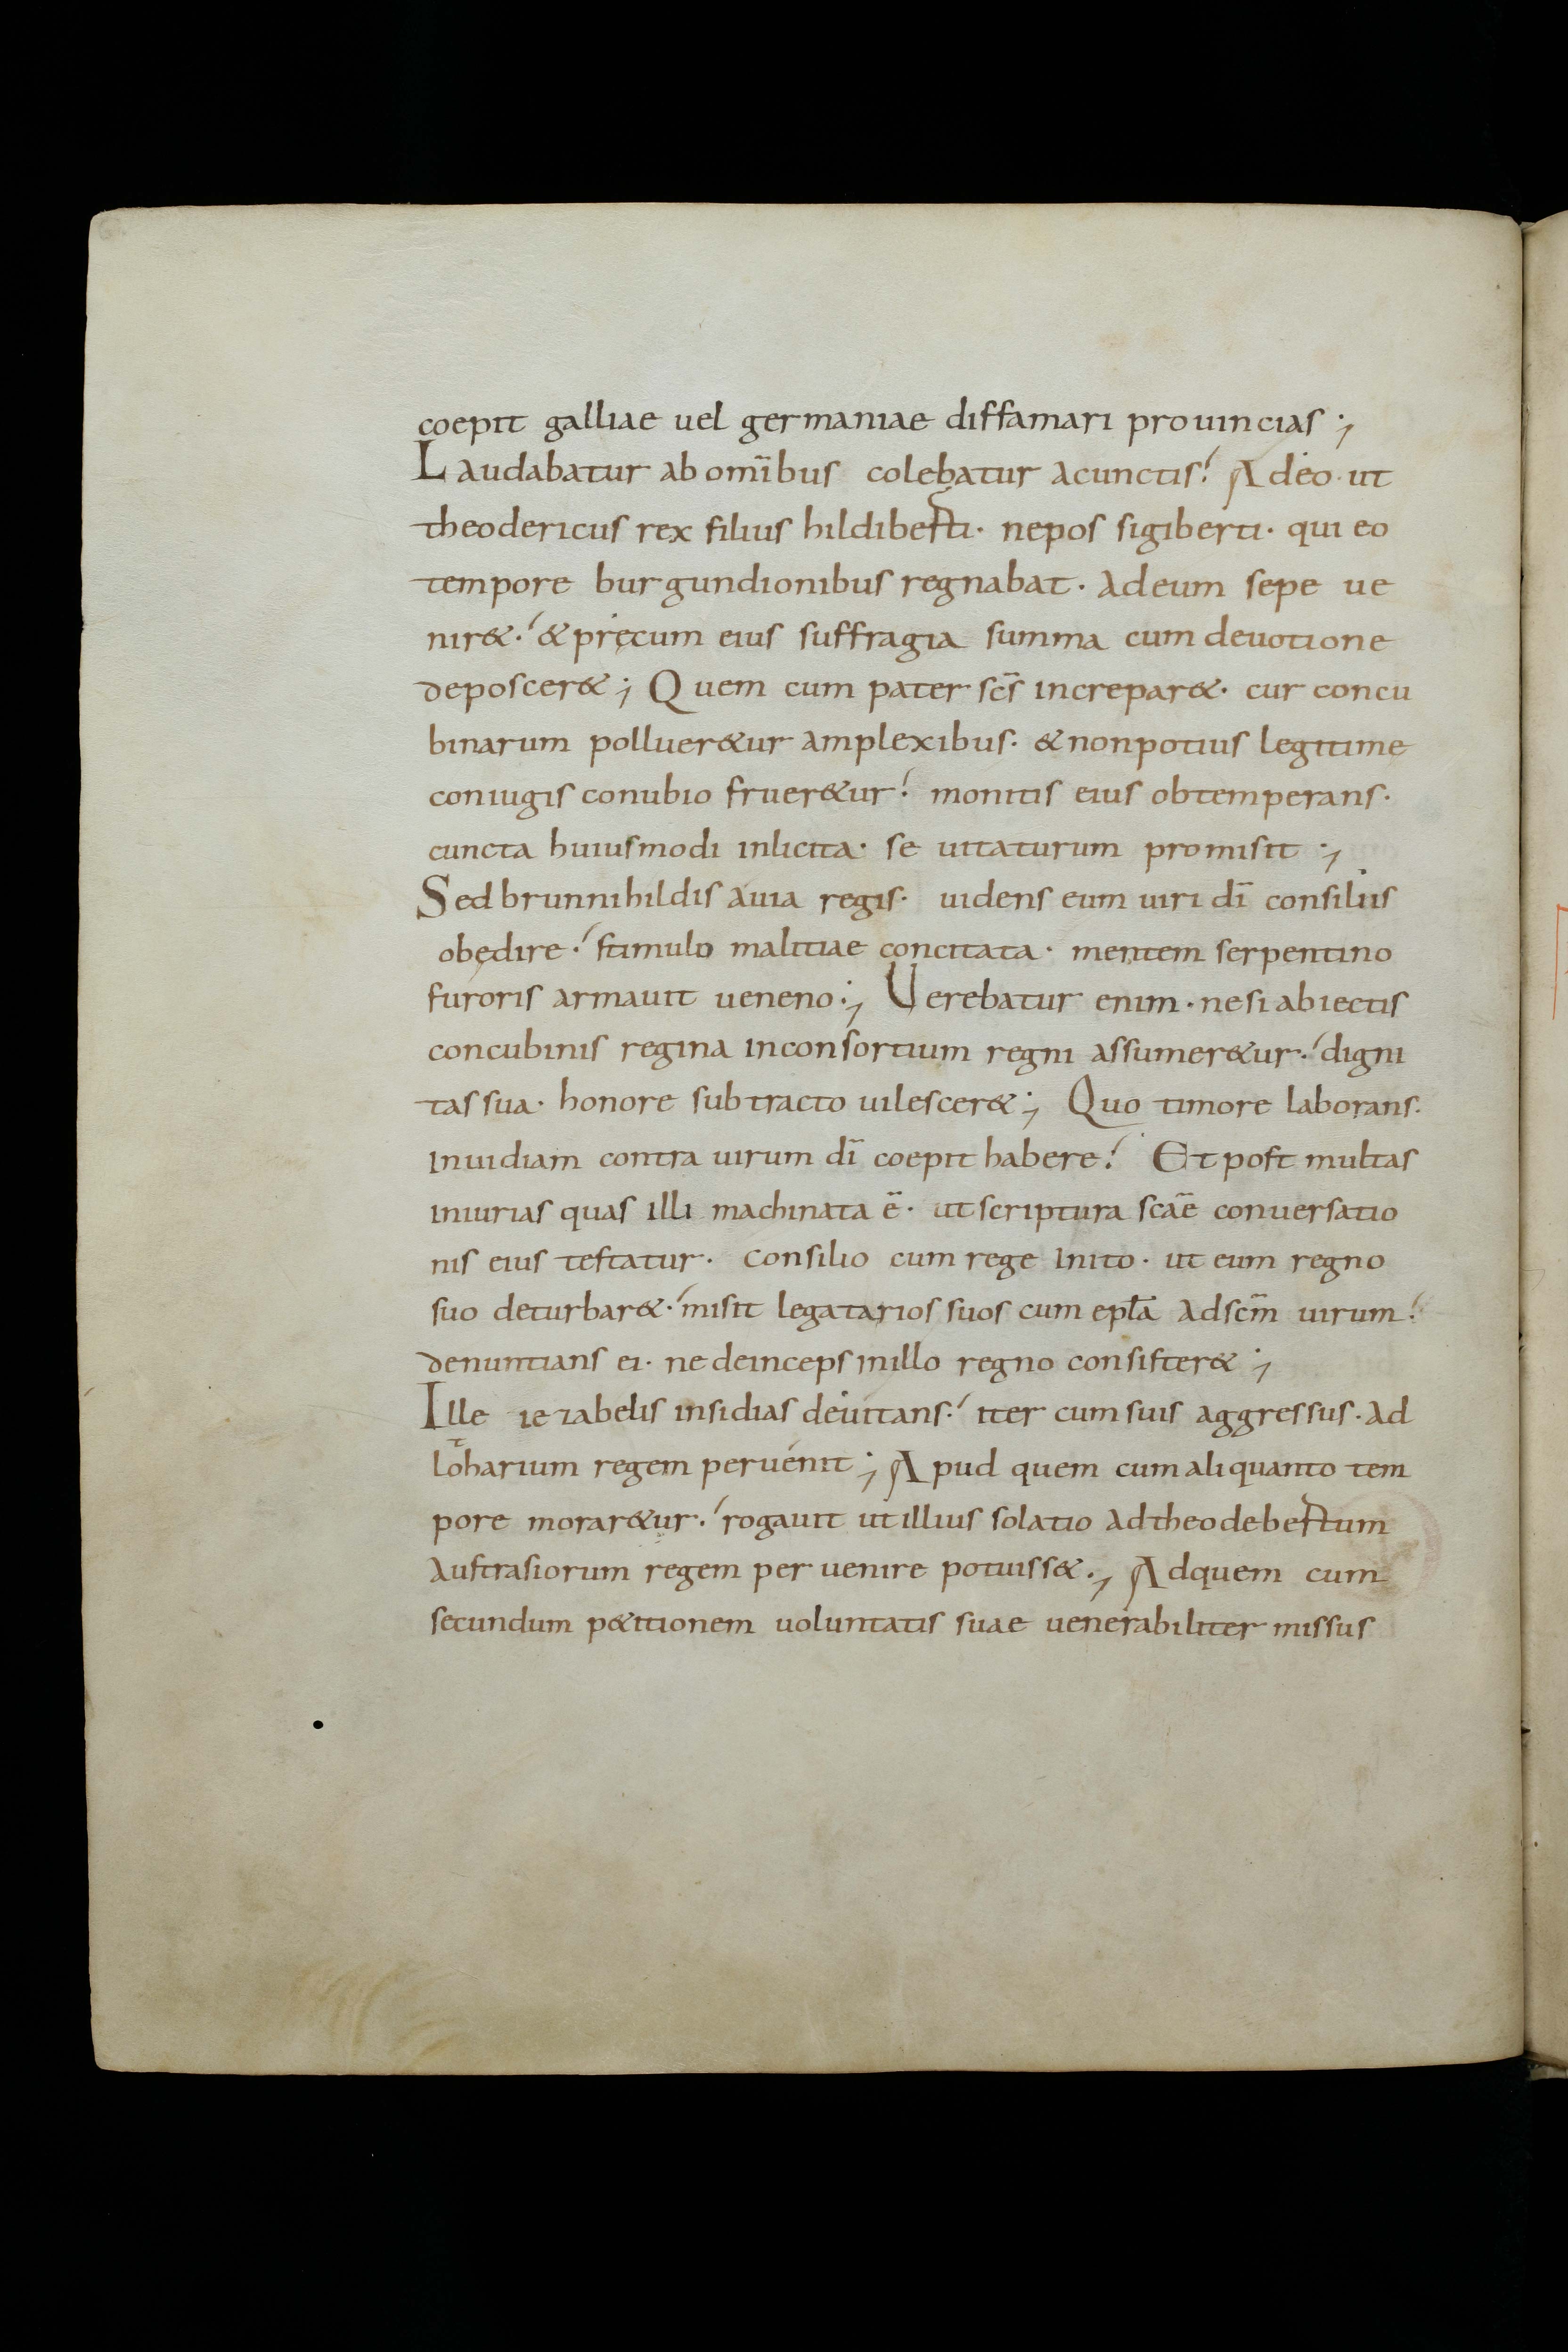 coepit galliae uel germaniae diffamari prouincias ;
Laudabatur ab om̄ibus colebatur acunctis! Adeo · ut
theodericus rex filius hildiberti · nepos sigiberti · qui eo
tempore burgundionibus regnabat · adeum sepe ue
nir&·! & pręcum eius suffragia summa cum deuotione
deposcer& ; Quem cum pater sc̄s increpar& · cur concu
binarum polluer&ur amplexibus · & nonpotius legitime
coniugis conubio fruer&ur! monitis eius obtemperans ·
cuncta huiusmodi inlicita · se uitaturum promisit ;
Sed brunnihildis auia regis · uidens eum uiri dī consiliis
obędire ·! stimulo malitiae concitata · mentem serpentino
furoris armauit ueneno ; Uerebatur enim · nesi abiectis
concubinis regina inconsortium regni assumer&ur ·! digni
tas sua · honore subtracto uilescer& ; Quo timore laborans ·
inuidiam contra uirum dī coepit habere! Et post multas
iniurias quas illi machinata ē · ut scriptura scāe conuersatio
nis eius testatur · consilio cum rege inito · ut eum regno
suo deturbar& ·! misit legatarios suos cum epl̄a adsc̄m uirum!
denuntians ei · ne deinceps inillo regno consister& ;
Ille iezabelis insidias deuitans ·! iter cum suis aggressus · ad
lotharium regem peruenit ; Apud quem cum aliquanto tem
pore morar&ur ·! rogauit ut illius solatio adtheodebertum
austrasiorum regem peruenire potuiss& ·, Adquem cum
secundum p&itionem uoluntatis suae uenerabiliter missus